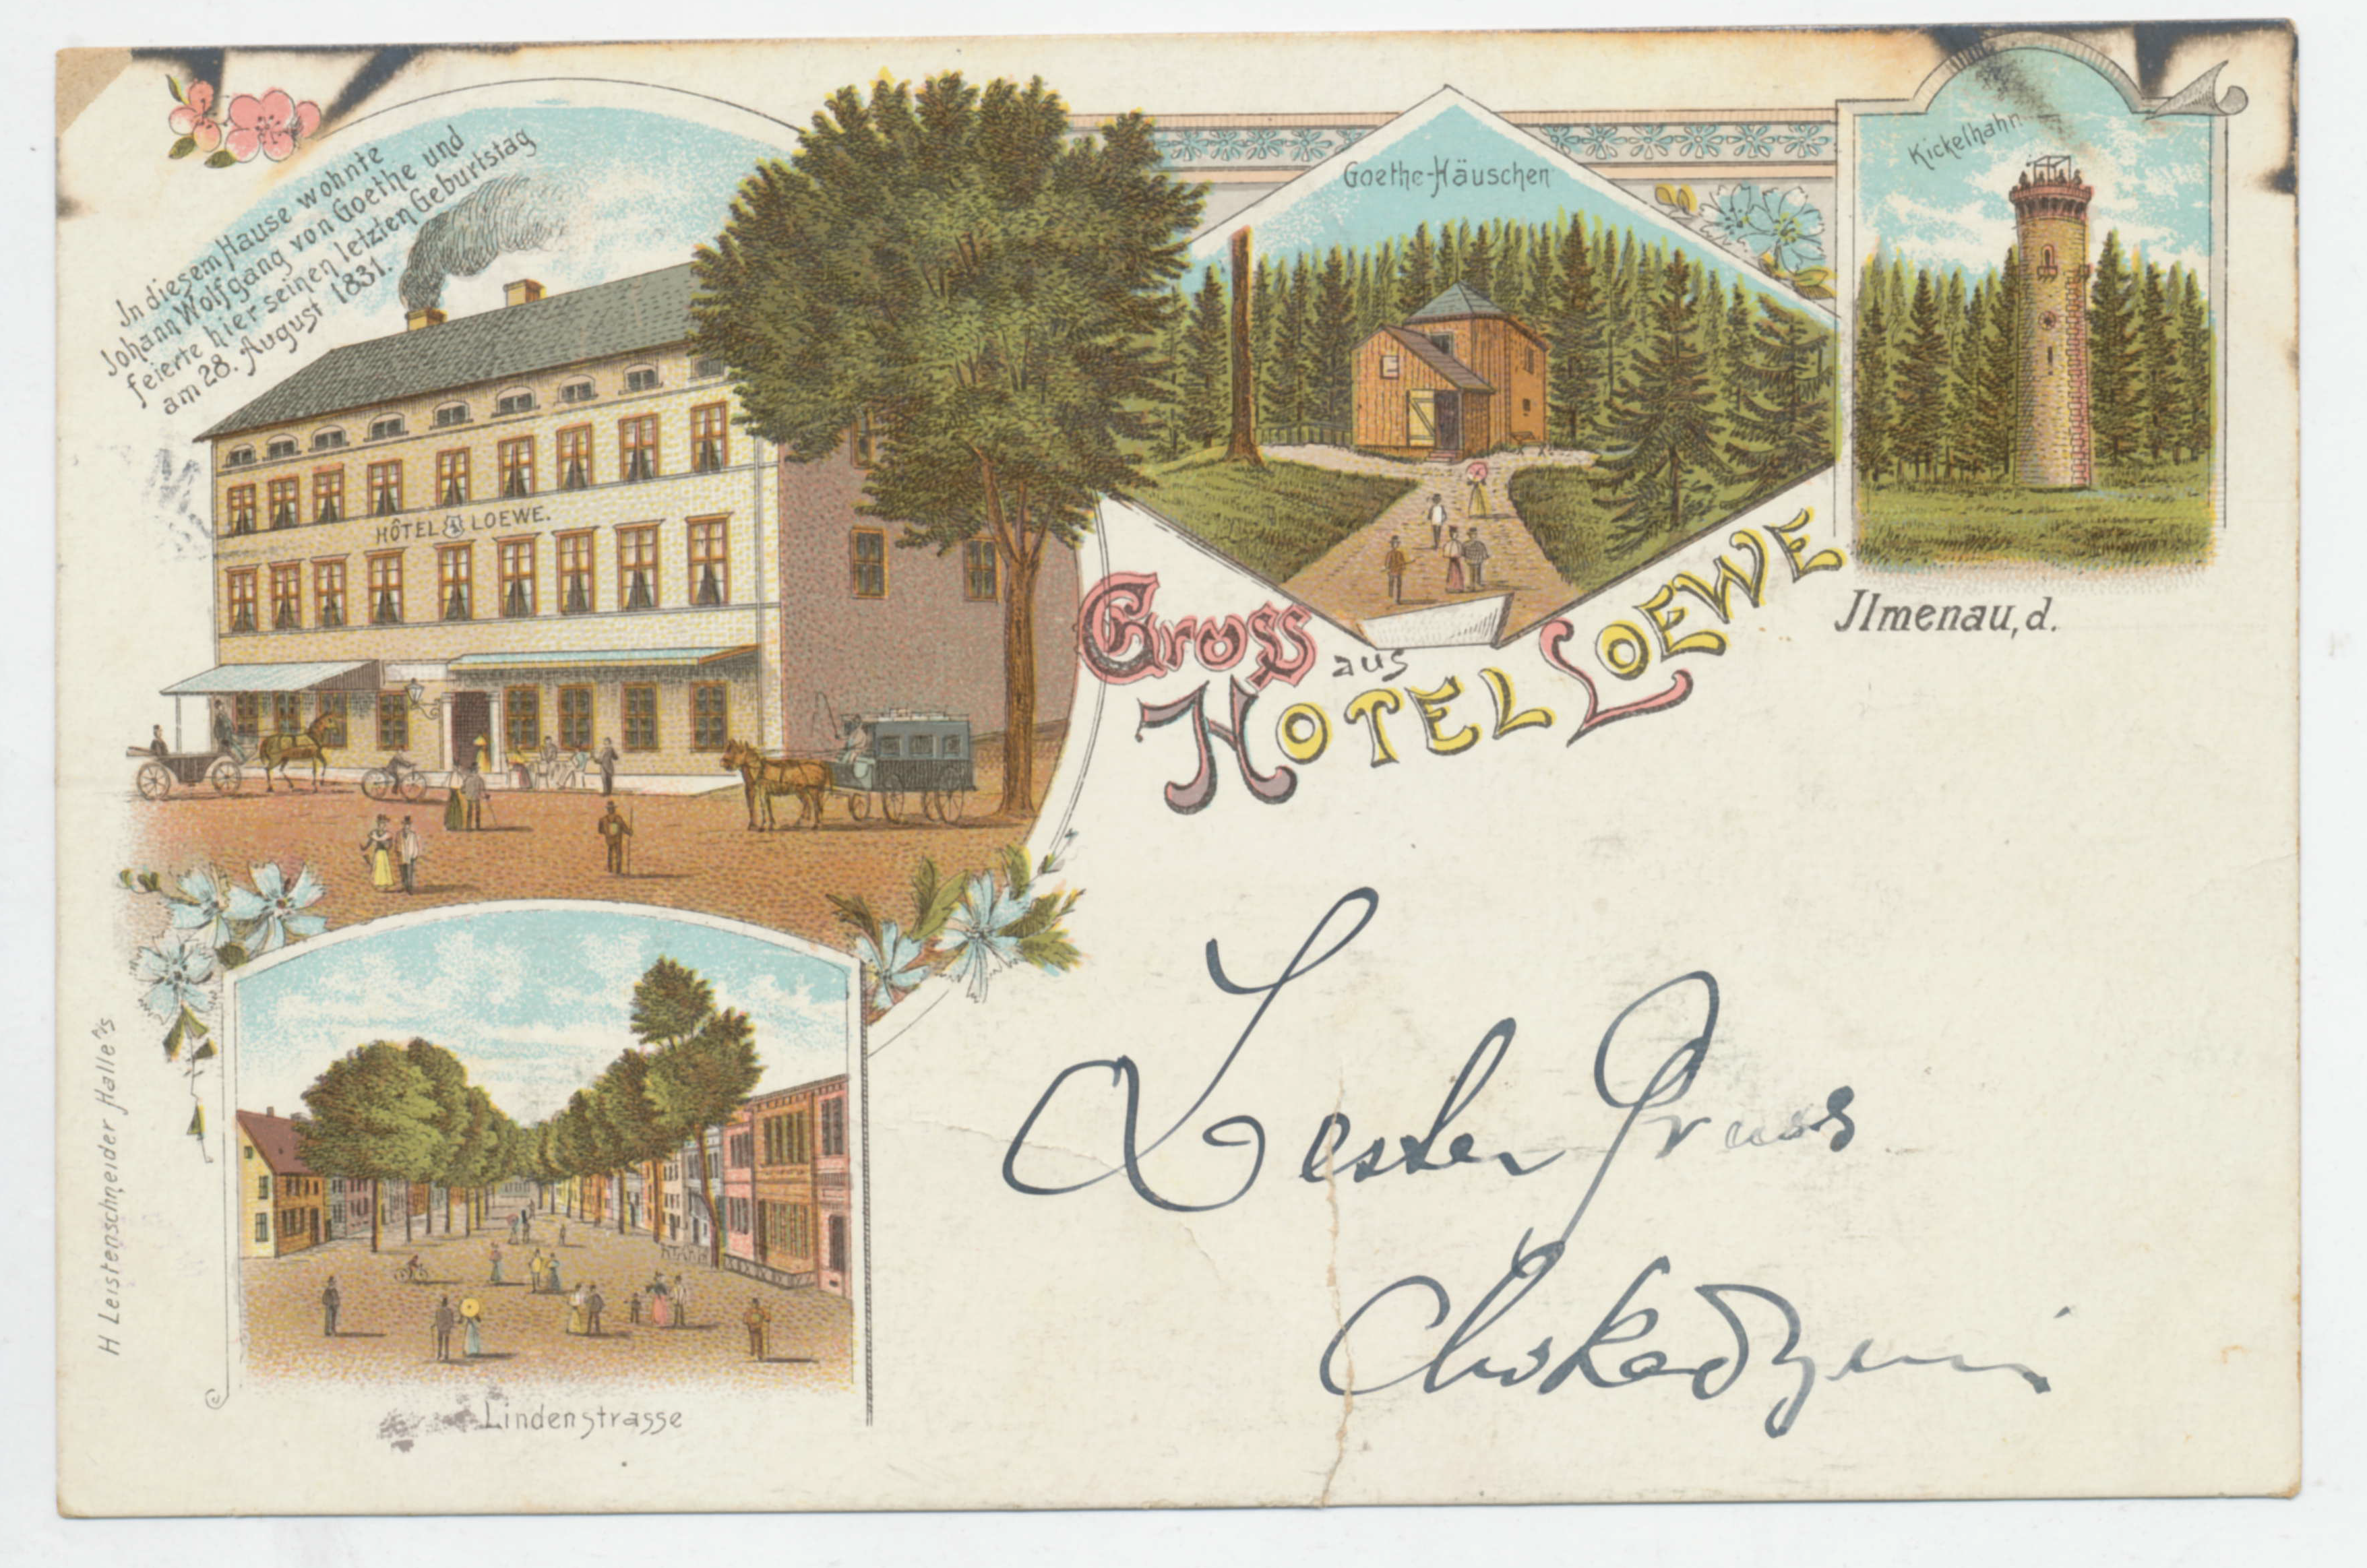 In diesem Hause wohnte
Johann Wolfgang von Goethe und
feierte hier seinen letzten Geburtstag
am 28. August 1831.
HÔTEL LOEWE.
Goethe-Häuschen
Kickelhahn
Gruss
aus
HOTEL LOEWE
Ilmenau, d.
Bester Gruss
Lindenstrasse
H Leistenschneider Halle a/s